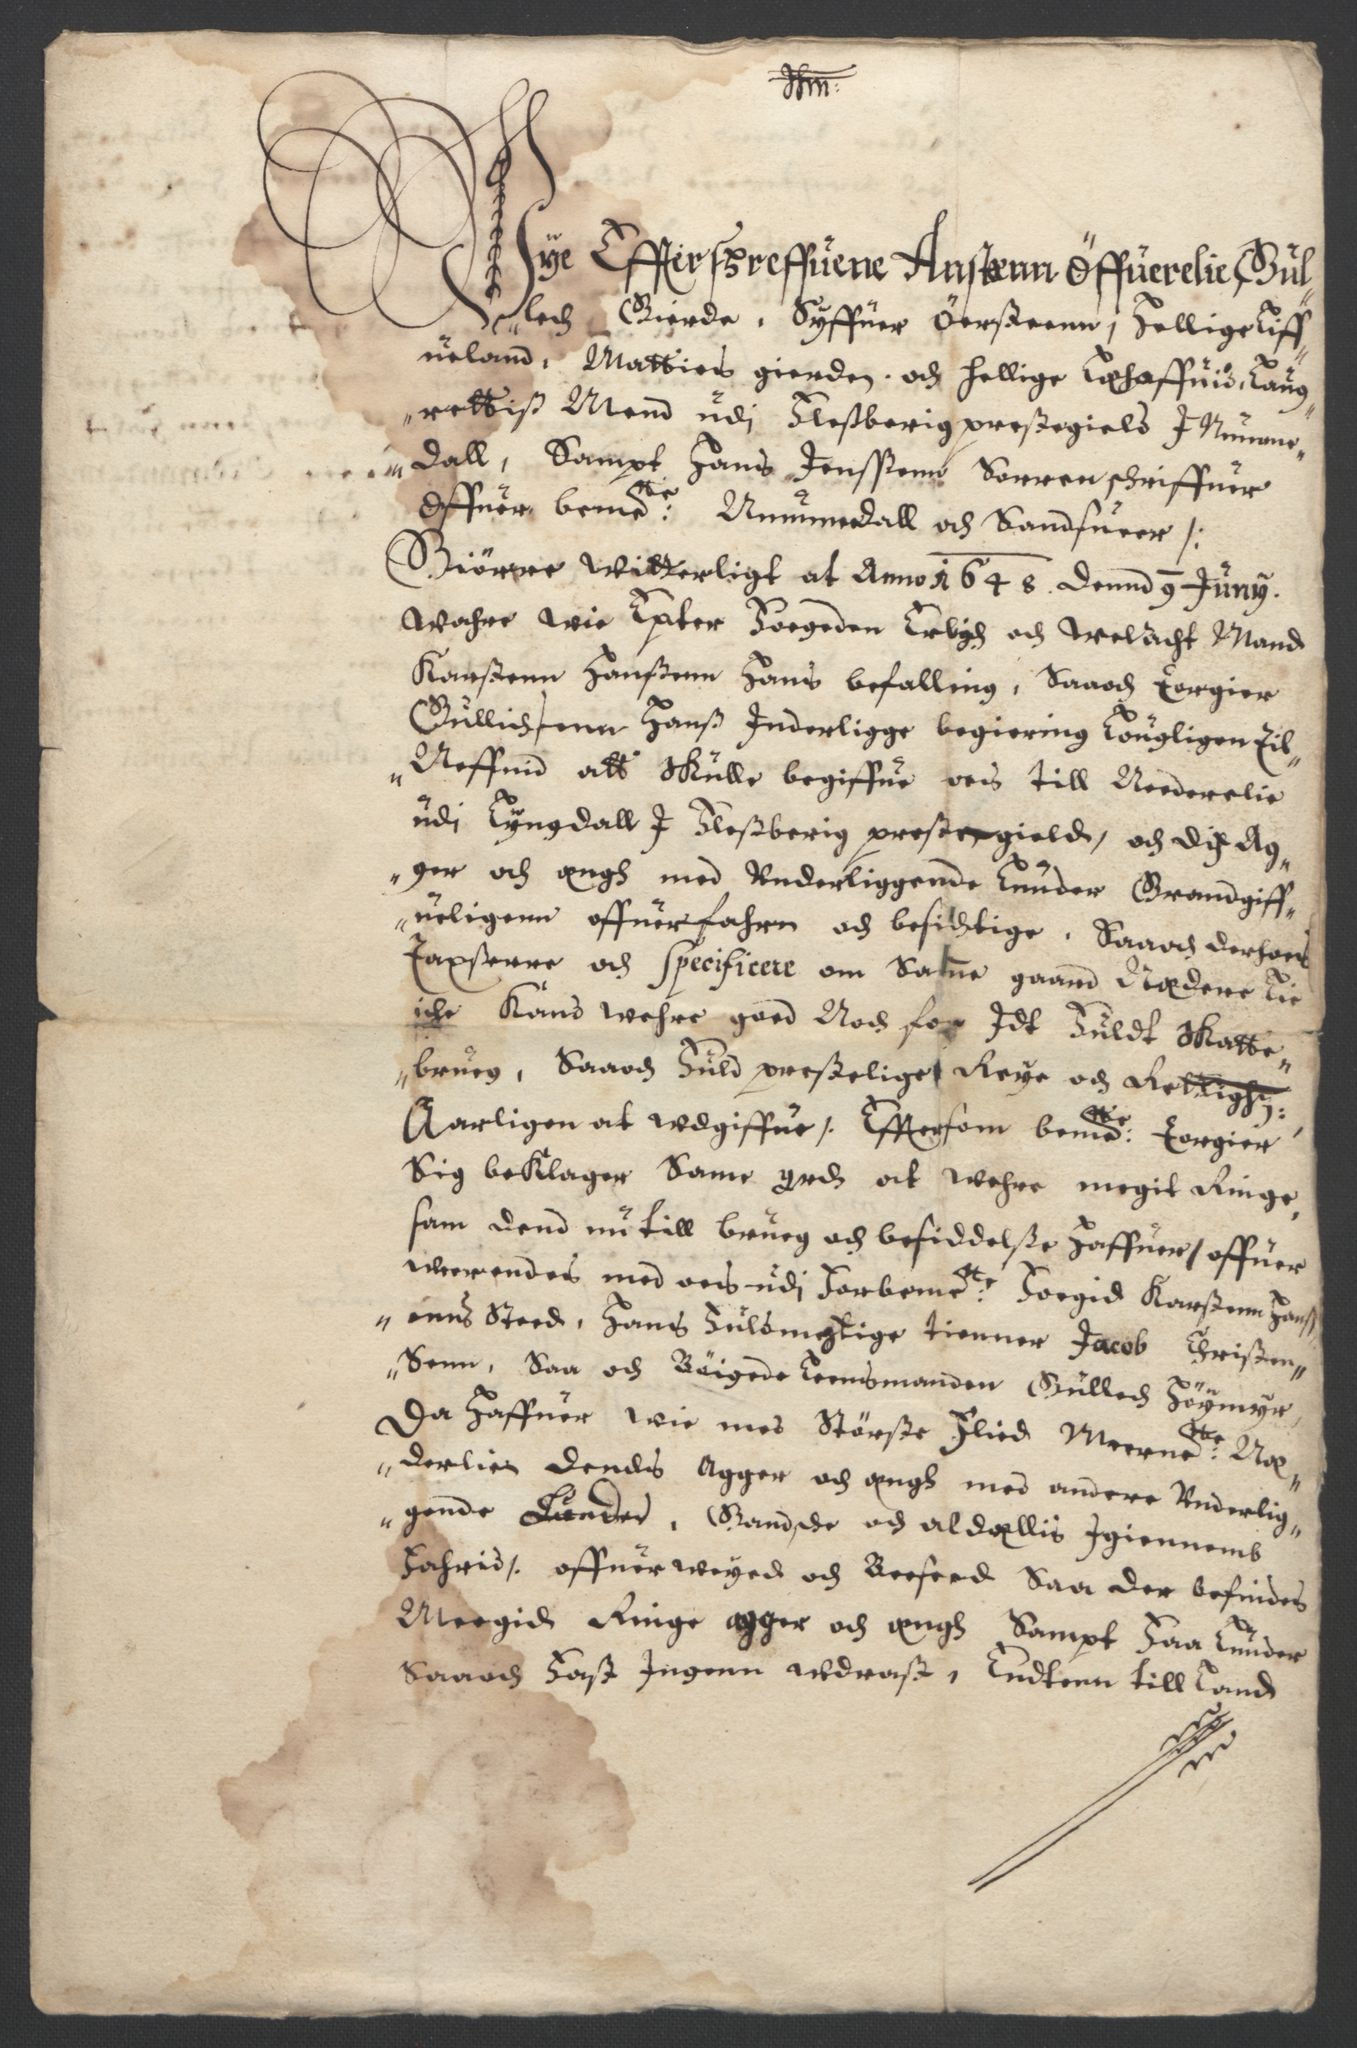 Wye Effterschreffuene Anstenn Offuerelie, Gul„
„lech Gierde, Syffuer Öersteenn, Hellige Tuff„
ueland, Matties gierden, och Hellige Lofthuus, Laug„
„rettiss Mend udi Flessberig prestegield J Nummme„
„dall, Sampt Hans Jenssenn Sorrenschriffuer
offuer bemte: Nummedall och Sandsuerr /:
Giörre witterligt at Anno 1648. dennd 9 Juny.
wahre wie Epter Foegeden Erligh och welacht Mand
Karstenn Hanssenn Hans befalling, Saaoch Torgier
Gullichssenn Hans Inderligge begiering Lougligen til„
„Neffnid att skulle begiffue oess till Nederelie
udi Lyngdall J Flessberig prestegield, och dis Ag„
„ger och engh med Underliggende Lunder Grandgiff„
„ueligenn offuerfahre och besichtige, Saaoch derhoess
Taxserre och Specificere om Same gaard Nederelie
iche Kand wehre goed Noch for Jdt Fuldt skatte„
„brueg, Saaoch Fuld prestelige Reye och Rettigh:
Aarligen at udgiffue /. Effttersom bemte: Torgier
Sig beklager Same grd at wehre megit Ringe,
som dend nu till brueg och besiddelse Haffuer / offuer
werrendes med oess udi Forbemte: Foegid Karstenn Hanss„
„enns Steed, Hans Fuldmechtige tienner Jacob Christen„
„Senn, Saa och Böigde Leensmanden Gullech Höymyr,
Da Haffuer wie med Störste Flied Meernte: Ne„
„derlies dends Agger och engh med andere Underlig„
„gende Lunder, Gandsche och aldellis Jgiennemb
Fahrid /. offuerweyed och Beseed Saa der befindes
Meegid Ringe agger och engh Sampt Faa Lunder
Saaoch Fast Ingenn udrast, Endtenn till Land